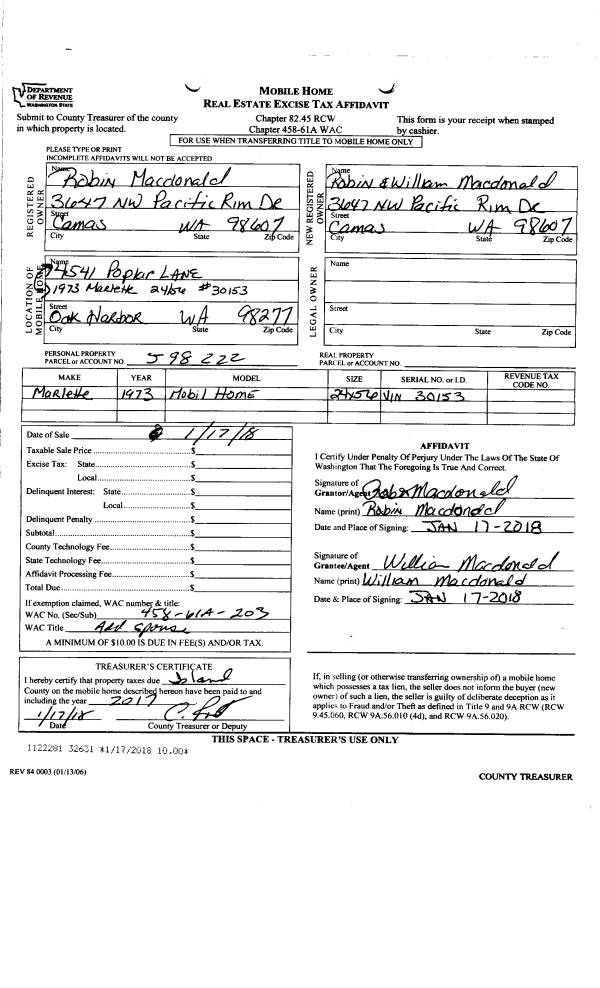 DEPARTMENT
OF REVENUE
WASHINGTON STATE
MOBILE HOME
REAL ESTATE EXCISE TAX AFFIDAVIT
Submit to County Treasurer of the county
in which property is located.
Chapter 82.45 RCW
Chapter 458-61A WAC
This form is your receipt when stamped
by cashier.
FOR USE WHEN TRANSFERRING TITLE TO MOBILE HOME ONLY
PLEASE TYPE OR PRINT
INCOMPLETE AFFIDAVITS WILL NOT BE ACCEPTED
REGISTERED OWNER
Name
Robin Macdonald
3647 NW Pacific Rim Dr
Street
Camas WA 98607
City State Zip Code
NEW REGISTERED OWNER
Name
Robin & William Macdonald
3647 NW Pacific Rim Dr
Street
Camas WA 98607
City State Zip Code
LOCATION OF MOBILE HOME
Name
4541 Poplar LANE
1973 Marlette 24/56 #30153
Street
Oak Harbor WA 98277
City State Zip Code
LEGAL OWNER
Name
Street
City State Zip Code
PERSONAL PROPERTY
PARCEL or ACCOUNT NO. 598222
REAL PROPERTY
PARCEL or ACCOUNT NO.
MAKE YEAR MODEL SIZE SERIAL NO. or I.D. REVENUE TAX CODE NO.
Marlette 1973 Mobil Home 24x56 VIN 30153
Date of Sale 1/17/18
Taxable Sale Price $
Excise Tax: State $
Local $
Delinquent Interest: State $
Local $
Delinquent Penalty $
Subtotal $
County Technology Fee $
State Technology Fee $
Affidavit Processing Fee $
Total Due $
If exemption claimed, WAC number & title:
WAC No. (Sec/Sub) 458-61A-203
WAC Title Add spouse
A MINIMUM OF $10.00 IS DUE IN FEE(S) AND/OR TAX.
AFFIDAVIT
I Certify Under Penalty Of Perjury Under The Laws Of The State Of
Washington That The Foregoing Is True And Correct.
Signature of
Grantor/Agent Robin Macdonald
Name (print) Robin Macdonald
Date and Place of Signing: JAN 17-2018
Signature of
Grantee/Agent William Macdonald
Name (print) William Macdonald
Date & Place of Signing: JAN 17-2018
TREASURER'S CERTIFICATE
I hereby certify that property taxes due Island
County on the mobile home described hereon have been paid to and
including the year 2017
1/17/18
Date County Treasurer or Deputy
If, in selling (or otherwise transferring ownership of) a mobile home
which possesses a tax lien, the seller does not inform the buyer (new
owner) of such a lien, the seller is guilty of deliberate deception as it
applies to Fraud and/or Theft as defined in Title 9 and 9A RCW (RCW
9.45.060, RCW 9A.56.010 (4d), and RCW 9A.56.020).
THIS SPACE - TREASURER'S USE ONLY
1122281 32631 *1/17/2018 10.00*
REV 84 0003 (01/13/06)
COUNTY TREASURER